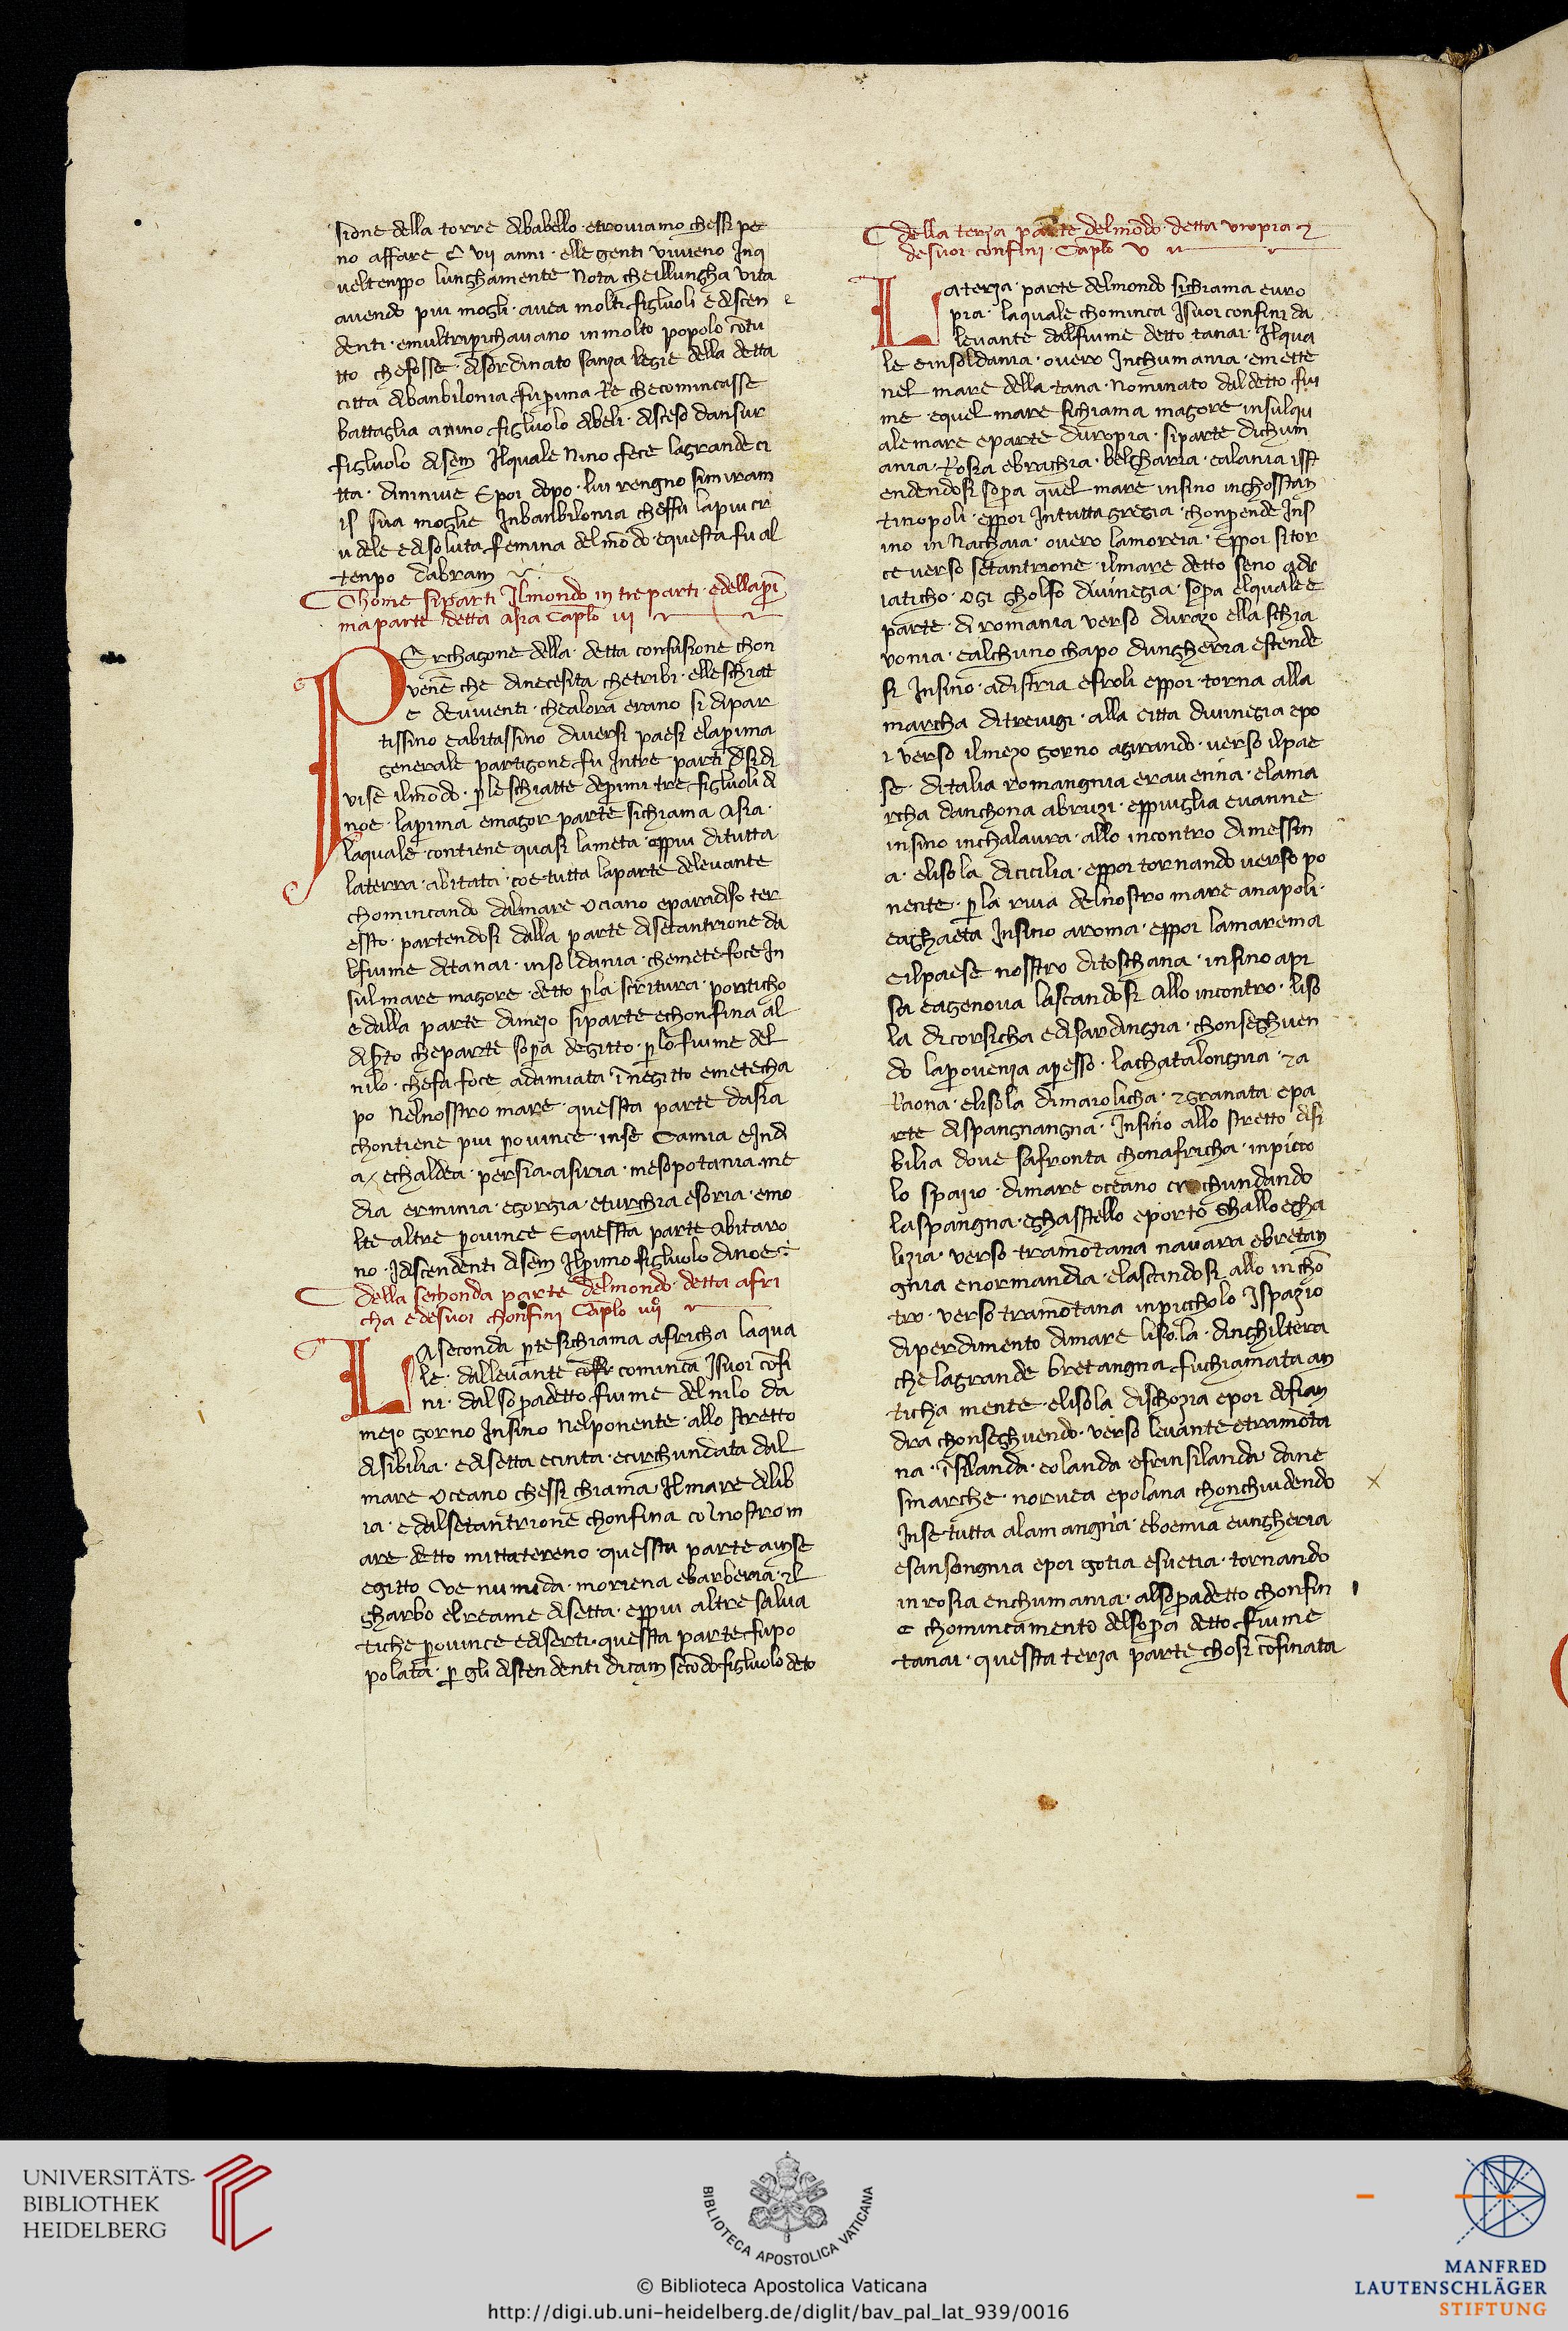 sione della torre dibabello · etroviamo chessi pe
no affare C vii anni · elle genti viveno Inq
ueltenppo lunghamente Nota cheillungha vita
avendo piu mogli · avea molti figluoli e discen
denti · emultripichavano inmolto popolo cōtu
tto chefosse · disordinato sanza legie della detta
citta dibanbilonia fu pima Re checomincasse
battaglia anino figluolo dibeli · disceso dansur
figluolo disem Ilquale Nino fece lagrande ci
tta · dininive E poi dopo · lui rengno simiram
is sua moglie Inbanbilonia cheffu lapiu cr
udele edisoluta femina delmōdo equesta fu al
tenpo dabram
Chome siparti Ilmondo in tre parti · edellapri
ma parte detta asia Caplo iii
PErchagone della · detta confusione chon
venē che dinecesita chetribi · elleschiat
e deviventi · chealora erano si dipar
tissino eabitassino diversi paesi elapima
generale partigone fu Intre parti disidi
vise ilmōdo · ple schiatte depimi tre figluoli di
noe · lapima emagor parte sichiama Asia ·
laquale · contiene quasi lameta · eppiu ditutta
laterra · abitata · coe tutta laparte delevante
chomincando dalmare Uciano eparadiso ter
essto · partendosi dalla parte disetantrione da
lfiume ditanai · insoldania · chemete foce In
sulmare magore · detto pla scritura · ponticho
e dalla parte dimezo siparte echonfina al
disto cheparte sopa degitto · plo fiume del
nilo · chefa foce adamiata īnegitto emetecha
po Nelnosstro mare · quessta parte dasia
chontiene piu povince · inse Camia eIndi
a / echaldea · persia · asiria · mesopotania · me
dia erminia · egorgia · eturchia esoria · emo
lte altre povince E quessta parte Abitaro
no · Idiscendenti disem Ilpimo figluolo dinoe
della sechonda parte delmondo · detta afri
cha edesuoi chonfini Caplo iiii
LA seconda pte sichiama africha laqua
le · dallevante comincia Isuoi cōfi
ni · dal sopadetto fiume del nilo da
mezo gorno Insino Nelponente · allo stretto
disibilia · edisetta ecinta · ecirchundata dal
mare Uceano chessi chiama Ilmare dilib
ia · e dalsetantrione chonfina colnostrom
are detto mittatereno · quessta parte ainse
egitto Ve numida · moriena ebarberia · el
gharbo elreame disetta · eppiu altre salva
tiche povince edisertj · quessta parte fupo
polata · p gli distendenti dicam secōdo figluolo deto
della terza parte delmōdo · detta uropia
desuoi confini · Caplo v
LAterza · parte delmondo sichiama euro
pia · laquale chominca Isuoi confini da
levante dalfiume detto tanai · Ilqua
le einsoldania · overo Inchumania · emette
nel mare della tana · Nominato daldetto fiu
me · equel mare sichiama magore insulqu
ale mare eparte duropia · siparte dichum
ania · Rosia ebrachia · belgharia · ealania isst
endendosi sopa quel mare insino inghosstan
tinopoli · eppoi Intutta gregia · chonpende Ins
ino in Nachaia · overo lamoreia · Eppoi sitor
ce verso setantrione · ilmare detto seno adr
iaticho · Ogi gholfo divinegia · sopa elquale e
parte · di romania verso durazo ella schia
vonia · ealchuno chapo dungheria estende
si Insino · adistria efroli eppoi · torna alla
marcha ditrevigi · alla citta divinegia epo
i verso ilmezo gorno agirando · verso ilpae
se · ditalia romangnia eravenna · elama
rcha danchona abruzi · eppuglia evanne
insino inchalavra · allo incontro dimessin
a · elisola dicicilia · eppoi tornando verso po
nente · pla riva delnostro mare anapoli ·
eaghaeta Insino aroma · eppoi lamarema
eilpaese nosstro ditoschana · insino api
sa eagenova lascandosi Allo incontro · liso
la dicorsicha edisardingna · chonseghuen
do lapovenza apesso · lachatalongnia · ea
Raona · elisola dimaiolicha · egranata epa
rte dispangnangna · Insino allo stretto disi
bilia dove safronta chonafricha · inpicco
lo spazio · dimare oceano circhundando
laspangna · eghastello eporto ghallo egha
lizia · verso tramōtana navara ebretan
gnia enormandia · elascandosi allo inchō
tro · verso tramōtana inpiccholo Ispazio
diperdimento dimare liso la · dinghiltera
che lagrande bretangna fuchiamata an
ticha mente · elisola dischozia epoi difian
dra chonseghuendo · verso levante etramōta
na · īsilanda · eolanda · efrinsilanda dane
smarche · norvea epolana chonchiudendo
Inse tutta alamangnia · eboemia eungheria
esansongnia epoi gotia esuetia · tornando
inrosia enchumania · alsopadetto chonfin
e chomincamento delsopa detto fiume
tanai · quessta terza parte chosi cōfinata
UNIVERSITÄTS-
BIBLIOTHEK
HEIDELBERG
BIBLIOTECA APOSTOLICA VATICANA
© Biblioteca Apostolica Vaticana
http://digi.ub.uni-heidelberg.de/diglit/bav_pal_lat_939/0016
MANFRED
LAUTENSCHLÄGER
STIFTUNG